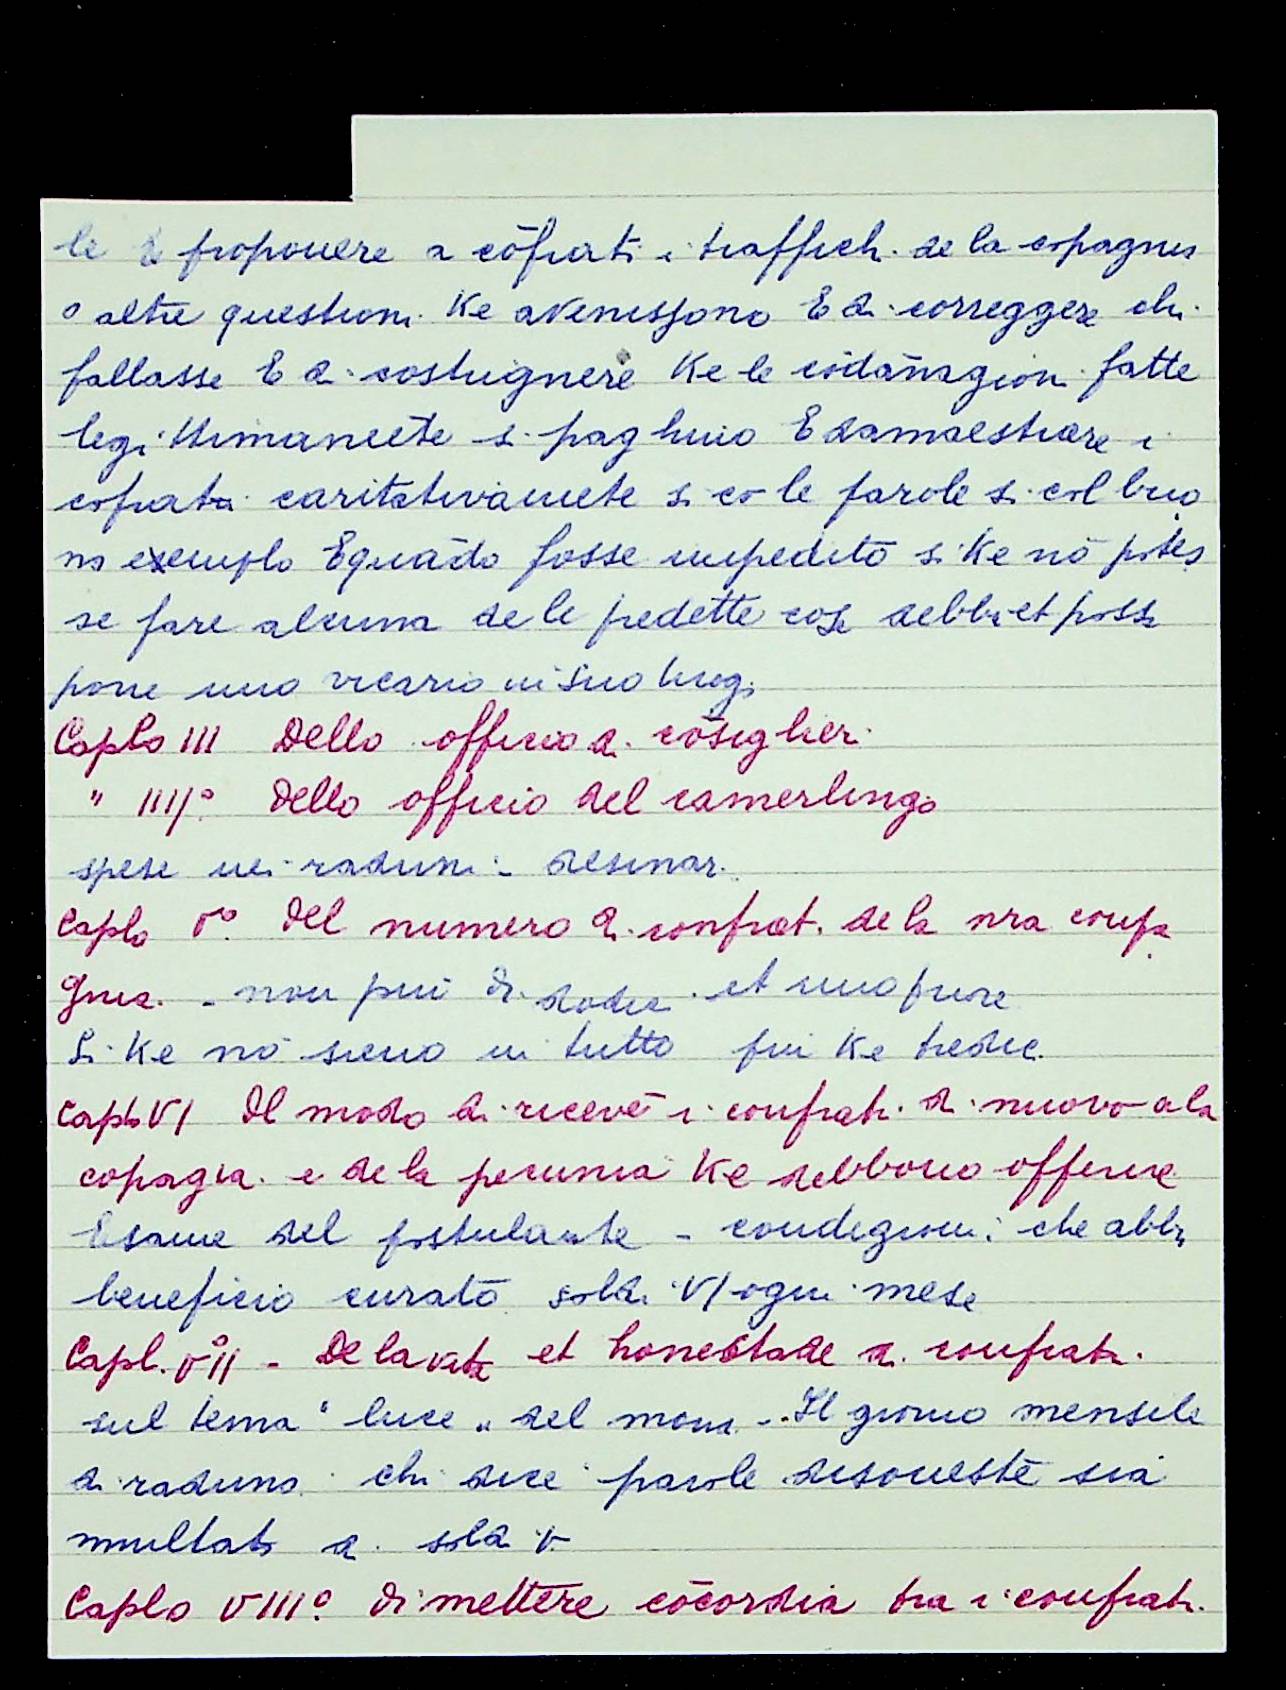 le E proponere a cōfrati i traffich. de la copagnia
o altre questioni. Ke avenissono E di correggere chi
fallasse E di costrignere Ke le cōdānagioni fatte
legittimamēte si paghino E damaestrare i
cofrati caritativamēte si co le parole si col buo
no exemplo E quādo fosse impedito si Ke nō potes
se fare alcuna de le predette cose debbi et possa
porre uno vicario in suo luogo
Caplo III Dello officio di cōsiglieri
" IIII° Dello officio del camerlingo
spese nei raduni - desinari
Caplo V° Del numero di confrat. de la nra compa
gnia. - non più di dodici et uno priore
Si Ke nō sieno in tutto più Ke tredici.
Caplo VI Il modo di ricevē i confrati di nuovo a la
copagia. e de la pecunia Ke debbono offerire
Esame del postulante - condizioni: che abbia
beneficio curato soldi VI ogni mese
Capl. V°II - De la vita et honestade di confrati.
sul tema "luce" del mond. - Il giorno mensile
di raduno. chi dice parole disoneste sia
multato di soldi V
Caplo VIII° Di mettere cōcordia tra i confrati.